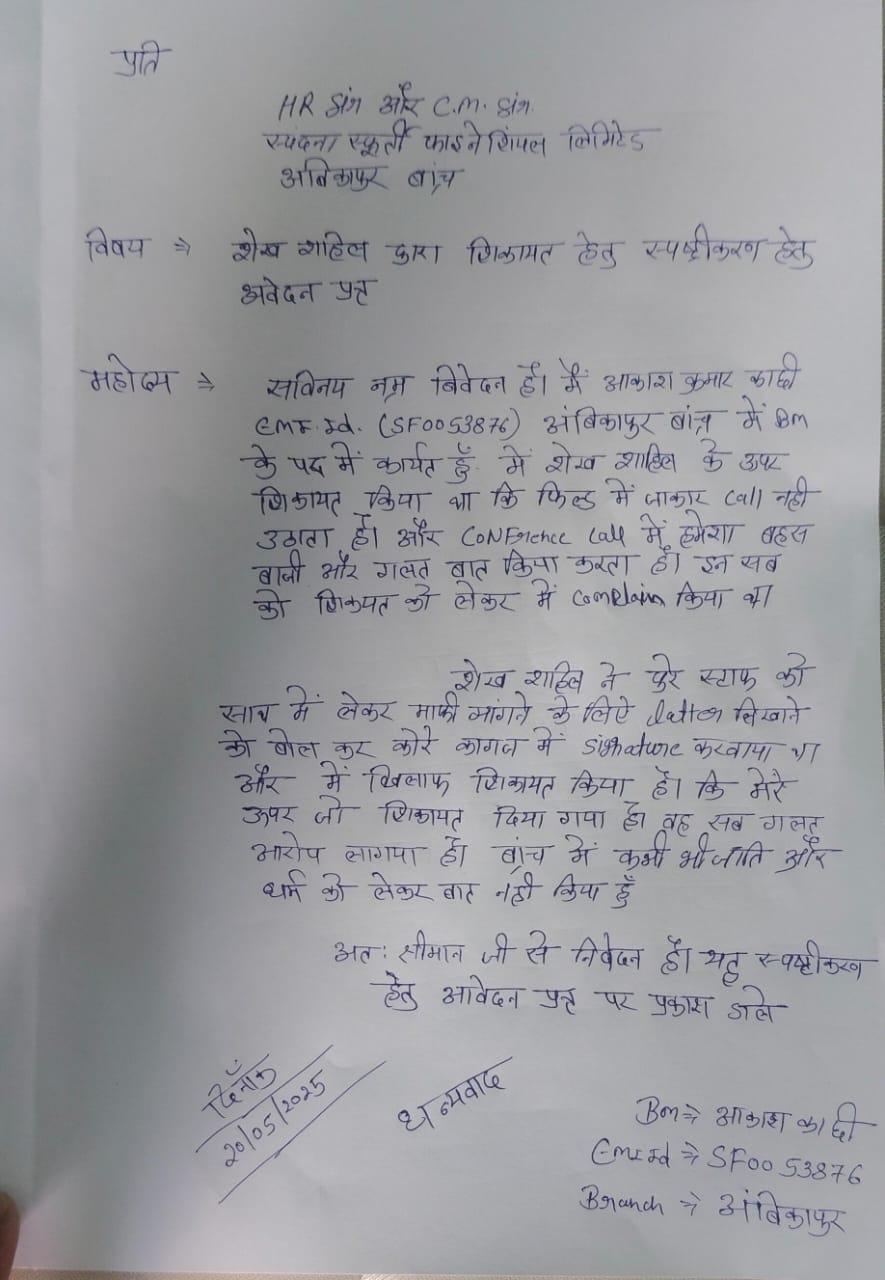 प्रति
HR सर और C.M. सर
स्पंदना स्फूर्ती फाइनेंशियल लिमिटेड
अबिकापुर बांच
विषय ⇒ शेख शाहिल द्वारा शिकायत हेतु स्पष्टीकरण हेतु
अवेदन प्रत्र
महोदय ⇒ सविनय नम्र निवेदन है। मैं आकाश कुमार काछी
Emp. Id. (SF0053876) अंबिकापुर बांच में Bm
के पद में कार्यत हुँ. में शेख शाहिल के ऊपर
शिकायत किया था कि फिल्ड में जाकार Call नही
उठाता है। और CONFrence Call में हमेशा बहस
बाजी और गलत बात किया करता है। इन सब
को शिकयत को लेकर में Complain किया था
शेख शाहिल ने पुरे स्टाफ को
साथ में लेकर माफी मांगने के लिऐ letter लिखाने
को बोल कर कोरे कागज में Signature करवाया था
और में खिलाफ शिकायत किया है। कि मेरे
ऊपर जो शिकायत दिया गया है। वह सब गलत
आरोप लागया है। बांच में कभी भी जाति और
धर्म को लेकर बात नही किया हुँ
अत: सीमान जी से निवेदन है। यह स्पष्टीकरण
हेतु आवेदन प्रत्र पर प्रकाश डाले
दिनाँक
20/05/2025
धन्यवाद
Bm ⇒ आकाश काछी
Emp Id ⇒ SF0053876
Branch ⇒ अंबिकापुर